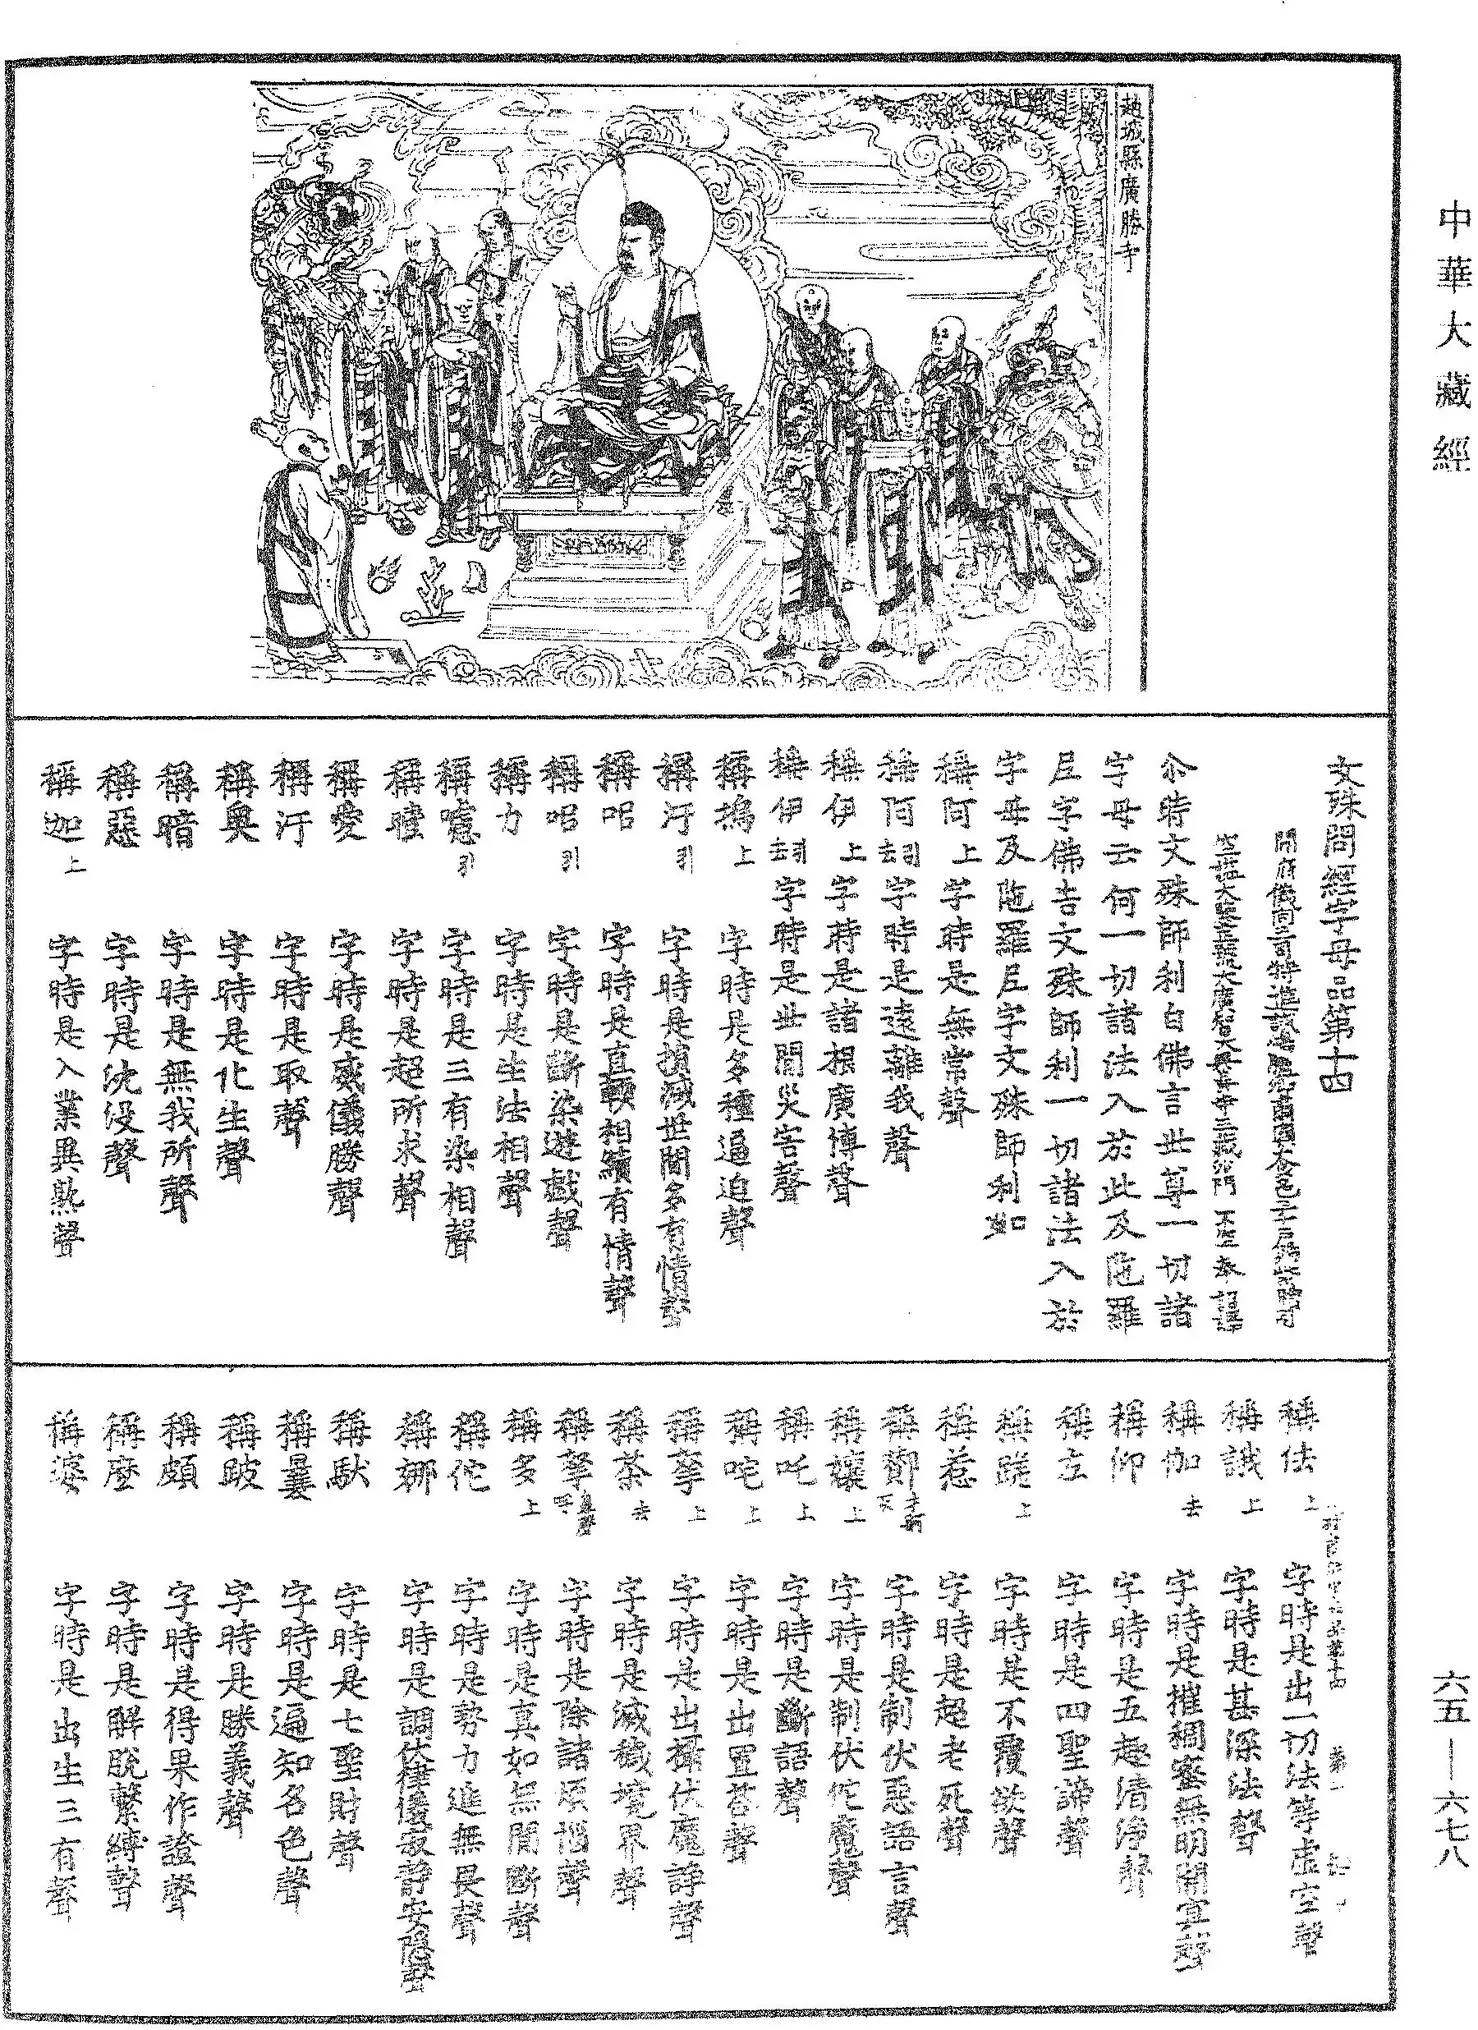 中華大藏經
趙城縣廣勝寺
文殊問經字母品第十四
開府儀同三司特進試鴻臚卿肅國公食邑三千戶賜紫贈司
空謚大鑒正號大廣智大興善寺三藏沙門不空奉詔譯
尒時文殊師利白佛言世尊一切諸
字母云何一切諸法入於此及陁羅
尼字佛告文殊師利一切諸法入於
字母及陁羅尼字文殊師利如
稱阿上字時是無常聲
稱阿引去字時是遠離我聲
稱伊上字時是諸根廣博聲
稱伊引去字時是世間災害聲
稱塢上字時是多種逼迫聲
稱汙引字時是損減世間多有情聲
稱呂字時是直軟相續有情聲
稱呂引字時是斷染遊戲聲
稱力字時是生法相聲
稱嚧引字時是三有染相聲
稱曀字時是超所求聲
稱愛字時是威儀勝聲
稱汙字時是取聲
稱奧字時是化生聲
稱暗字時是無我所聲
稱惡字時是沈没聲
稱迦上字時是入業異熟聲
稱佉上字時是出一切法等虛空聲
稱誐上字時是甚深法聲
稱伽去字時是摧稠密無明闇冥聲
稱仰字時是五趣清淨聲
稱左字時是四聖諦聲
稱蹉上字時是不覆欲聲
稱惹字時是超老死聲
稱酇字時是制伏惡語言聲
稱孃上字時是制伏佗魔聲
稱吒上字時是斷語聲
稱咤上字時是出置荅聲
稱拏上字時是出攝伏魔諍聲
稱荼去字時是滅穢境界聲
稱拏鼻聲呼字時是除諸煩惱聲
稱多上字時是真如無間斷聲
稱佗字時是勢力進無畏聲
稱娜字時是調伏律儀寂靜安隱聲
稱馱字時是七聖財聲
稱曩字時是遍知名色聲
稱跛字時是勝義聲
稱頗字時是得果作證聲
稱麼字時是解脫繫縛聲
稱婆字時是出生三有聲
六五—六七八